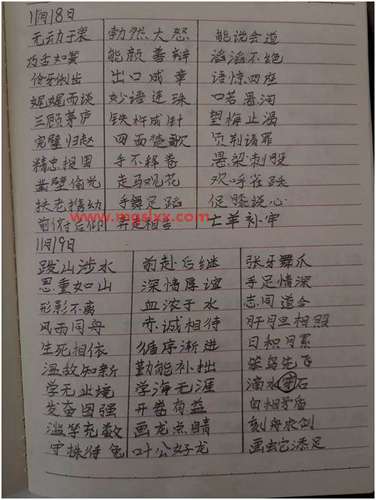 11月18日
无动于衷 勃然大怒 能说会道
巧舌如簧 能颜善辩 滔滔不绝
伶牙俐齿 出口成章 语惊四座
娓娓而谈 妙语连珠 口若悬河
三顾茅庐 铁杵成针 望梅止渴
完璧归赵 四面楚歌 负荆请罪
精忠报国 手不释卷 悬梁刺股
凿壁偷光 走马观花 欢呼雀跃
扶老携幼 手舞足蹈 促膝谈心
www.mgslxx.com
前俯后仰 亡羊补牢
11月19日
跋山涉水 前赴后继 张牙舞爪
恩重如山 深情厚谊 手足情深
形影不离 血浓于水 志同道合
风雨同舟 赤诚相待 肝胆相照
生死相依 循序渐进 日积月累
温故知新 勤能补拙 笨鸟先飞
学无止境 学海无涯 滴水穿石
发奋图强 开卷有益 自相矛盾
滥竽充数 画龙点睛 刻舟求剑
守株待兔 叶公好龙 画蛇添足